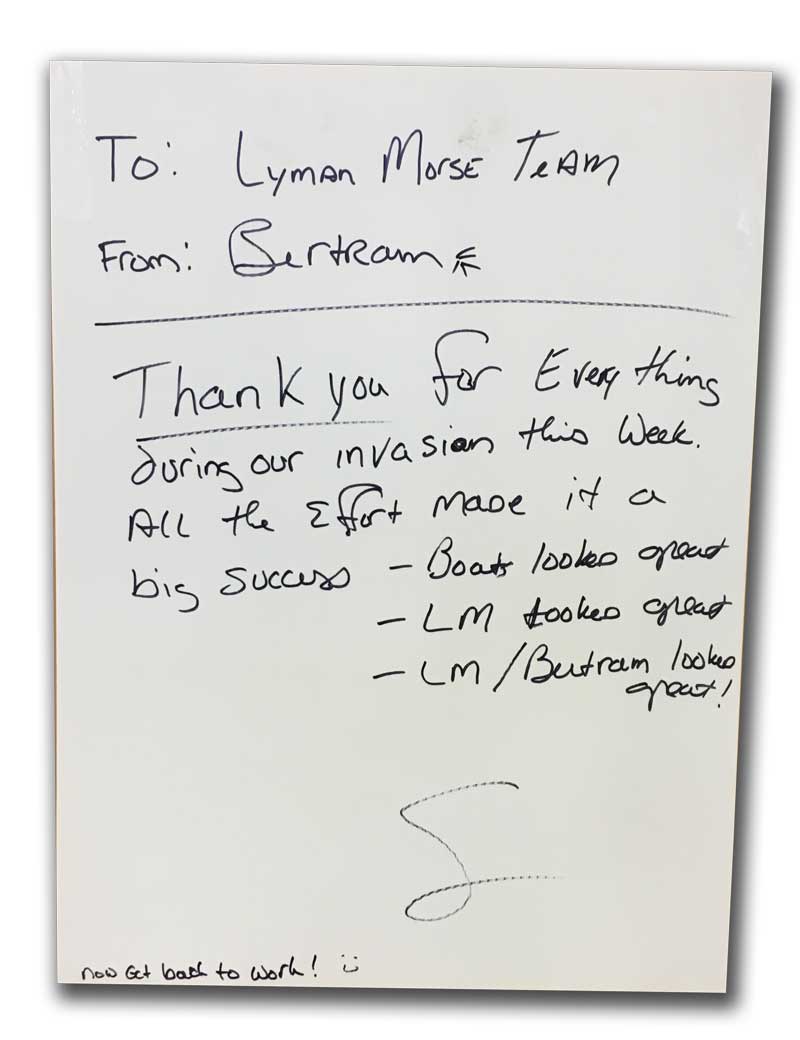 To: Lyman Morse Team
From: Bertram
Thank you for Everything
during our invasion this week.
All the Effort made it a
big success - Boats looked great
- LM looked great
- LM/Bertram looked
great!
now Get back to work! :)